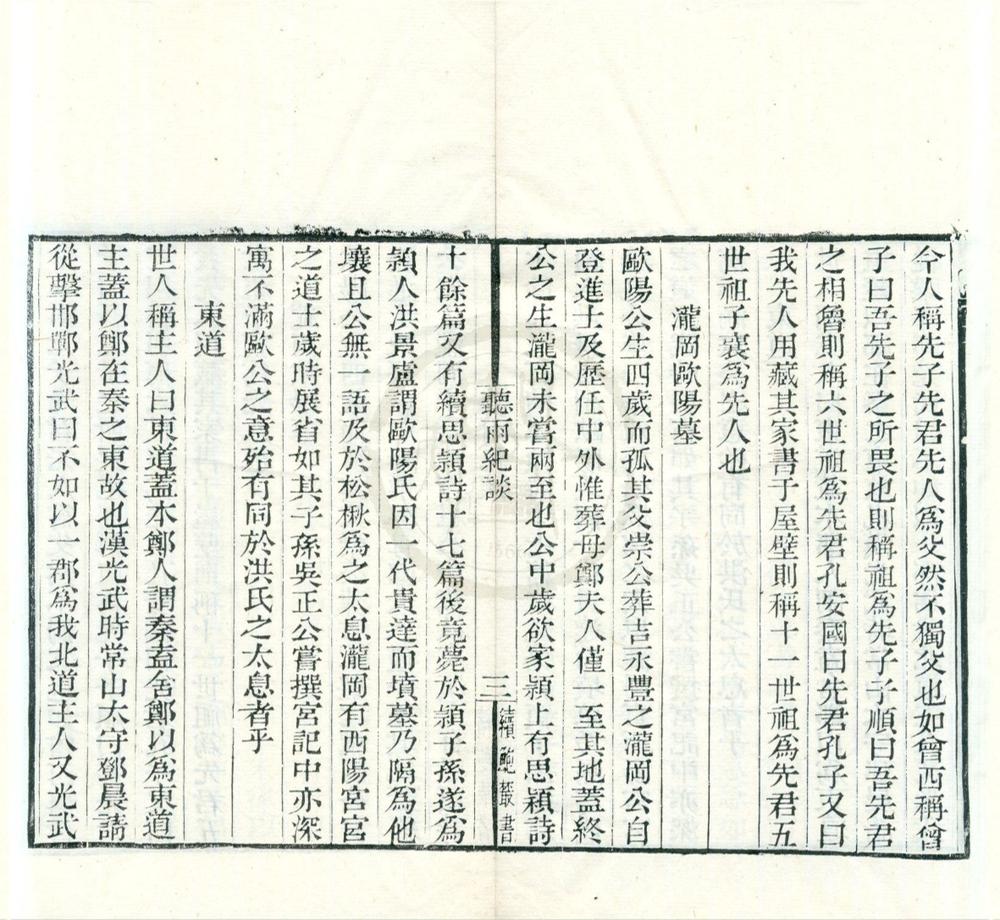 今人稱先子先君先人爲父然不獨父也如曾西稱曾
子曰吾先子之所畏也則稱祖爲先子子順曰吾先君
之相魯則稱六世祖爲先君孔安國曰先君孔子又曰
我先人用藏其家書于屋壁則稱十一世祖爲先君五
世祖子襄爲先人也
瀧岡歐陽墓
歐陽公生四歲而孤其父崇公葬吉永豐之瀧岡公自
登進士及歷任中外惟葬母鄭夫人僅一至其地蓋終
公之生瀧岡未嘗兩至也公中歲欲家潁上有思潁詩
聽雨紀談
三
續鮑叢書
十餘篇又有續思潁詩十七篇後竟薨於潁子孫遂爲
潁人洪景盧謂歐陽氏因一代貴達而墳墓乃隔爲他
壤且公無一語及於松楸爲之太息瀧岡有西陽宮宮
之道士歲時展省如其子孫吳正公嘗撰宮記中亦深
寓不滿歐公之意殆有同於洪氏之太息者乎
東道
世人稱主人曰東道蓋本鄭人謂秦盍舍鄭以爲東道
主蓋以鄭在秦之東故也漢光武時常山太守鄧晨請
從擊邯鄲光武曰不如以一郡爲我北道主人又光武